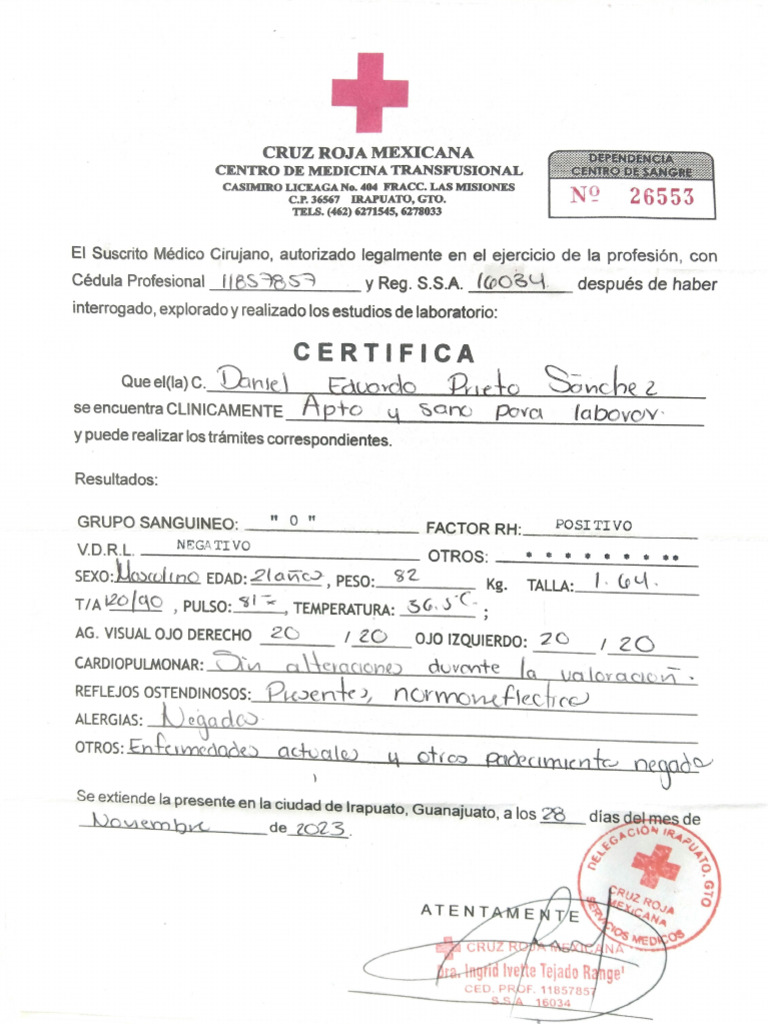 CRUZ ROJA MEXICANA
CENTRO DE MEDICINA TRANSFUSIONAL
CASIMIRO LICEAGA No. 404 FRACC. LAS MISIONES
C.P. 36567 IRAPUATO, GTO.
TELS. (462) 6271545, 6278033
DEPENDENCIA
CENTRO DE SANGRE
Nº 26553
El Suscrito Médico Cirujano, autorizado legalmente en el ejercicio de la profesión, con
Cédula Profesional 11857857 y Reg. S.S.A. 16034 después de haber
interrogado, explorado y realizado los estudios de laboratorio:
CERTIFICA
Que el(la) C. Daniel Eduardo Prieto Sánchez
se encuentra CLINICAMENTE Apto y sano para laborar.
y puede realizar los trámites correspondientes.
Resultados:
GRUPO SANGUINEO: " O " FACTOR RH: POSITIVO
V.D.R.L. NEGATIVO OTROS: * * * * * * * **
SEXO: Masculino EDAD: 21años, PESO: 82 Kg. TALLA: 1.64.
T/A 120/90, PULSO: 81x, TEMPERATURA: 36.5°C;
AG. VISUAL OJO DERECHO 20 / 20 OJO IZQUIERDO: 20 / 20
CARDIOPULMONAR: Sin alteraciones durante la valoración.
REFLEJOS OSTENDINOSOS: Presentes, normoreflectico
ALERGIAS: Negadas
OTROS: Enfermedades actuales y otros padecimiento negado
Se extiende la presente en la ciudad de Irapuato, Guanajuato, a los 28 días del mes de
Noviembre de 2023.
DELEGACIÓN IRAPUATO, GTO
CRUZ ROJA
MEXICANA
SERVICIOS MEDICOS
ATENTAMENTE
CRUZ ROJA MEXICANA
Dra. Ingrid Ivette Tejado Rangel
CED. PROF. 11857857
S.S.A. 16034